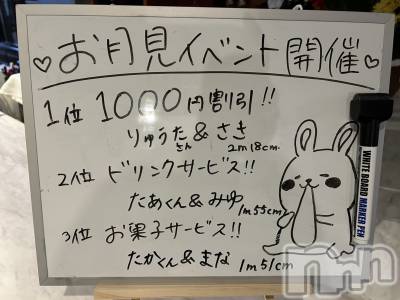 ♡お月見イベント開催♡
1位 1000円割引!!
りゅうたさん&さき 2m18cm.
2位 ドリンクサービス!!
たあくん&みゆ 1m55cm
3位 お菓子サービス!!
たかくん&まな 1m51cm
WHITE BOARD MARKER PEN